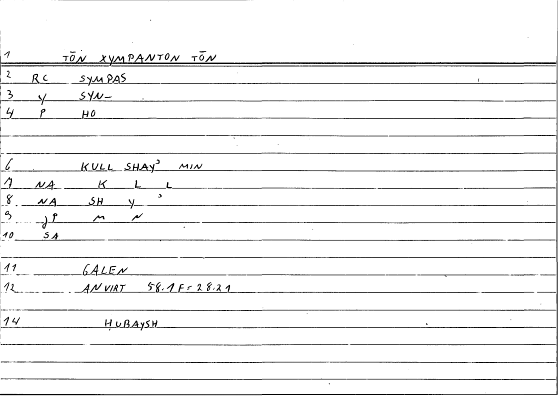 1 TŌN XYMPANTON TŌN
2 RC SYMPAS
3 Y SYN-
4 P HO
6 KULL SHAYʾ MIN
7 NA K L L
8 NA SH Y ʾ
9 JP M N
10 SA
11 GALEN
12 AN VIRT 58.1 Er 28.21
14 ḤUBAYSH